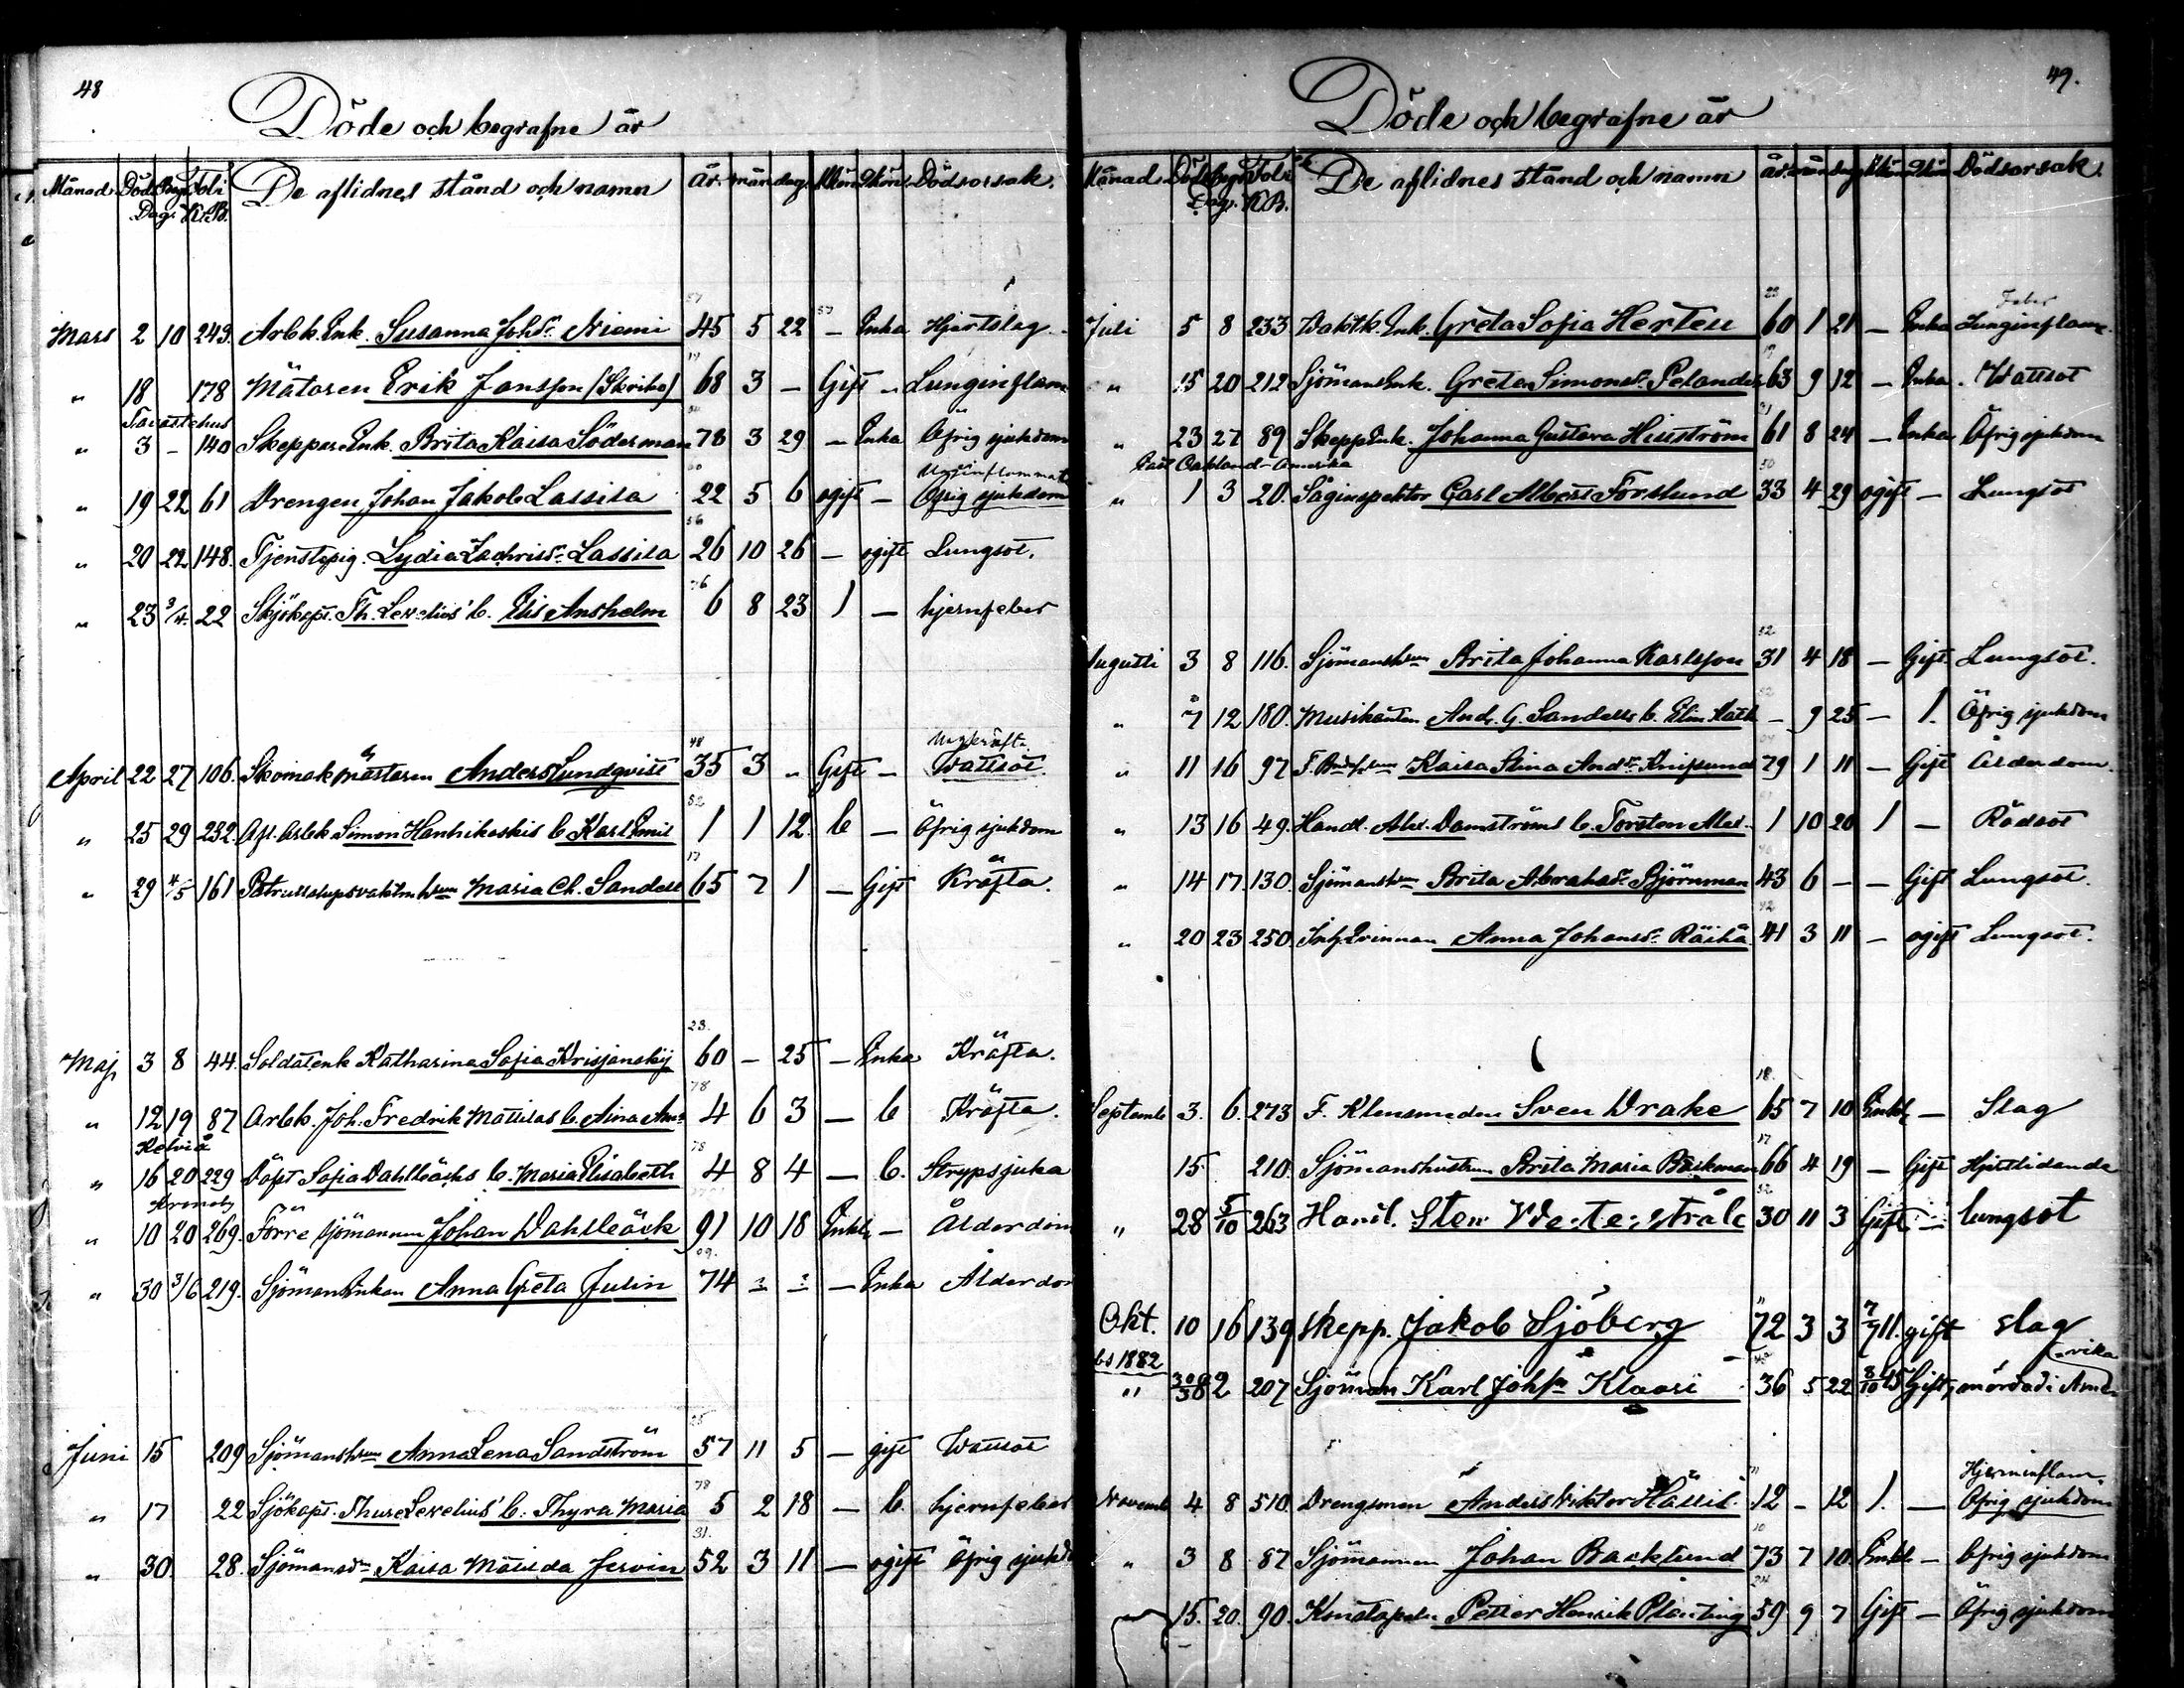 48
Döde och begrafne år
Månad Död Begr. Foli De aflidnes stånd och namn år. mån dag. Mkön Qkön Dödsorsak.
Dag. K.B.
57
Mars 2 10 249. Arbk. Enk. Susanna Johdr. Niemi 45 5 22 — Enka Hjertslag
" 18 178 Mätaren Erik Jansson (Skriko) 68 3 — Gift — Lunginflam
Tavastehus
" 3 - 140 Skeppar. Enk. Brita Kaisa Söderman 78 3 29 — Enka Öfrig sjukdom
" 19 22 61 Drengen Johan Jakob Lassila 22 5 6 ogift — Öfrig sjukdom
56
" 20 22 148. Tjenstepig. Lydia Zachrisdr. Lassila 26 10 26 — ogift Lungsot.
76
" 23 3/4. 22 Sjökapt. Th. Lexelius' b. Elis Anshelm 6 8 23 1 — hjernfeber
48
April 22 27 106. Skomakmästaren Anders Lundqvist 35 3 " Gift — Wattsot
" 25 29 232. Afl. Arbk Simon Hanhikoskis b Karl Emil 1 1 12. b — Öfrig sjukdom
17
" 29 4/5 161 Maria Ch. Sandell 65 7 1 — Gift Kräfta.
23.
Maj 3 8 44. Soldatenk Katharina Sofia Krisjanskij 60 — 25 — Enka Kräfta.
78
" 12 19 87 Arbk. Joh. Fredrik Mattilas b. Aina 4 6 3 — b Kräfta.
Kelviå
78
" 16 20 229 Sofia Dahlbäcks b. Maria Elisabeth 4 8 4 — b. Strypsjuka
Kronoby
" 10 20 269. Förre sjömannen Johan Dahlbäck 91 10 18 Enkl. — Ålderdom
09.
" 30 3/6 219. Sjömans Enkan Anna Greta Julin 74 — Enka Ålderdom
25
Juni 15 209 Sjömanshu Anna Lena Sandström 57 11 5 — gift Wattsot
78
" 17 22 Sjökapt. Thure Lexelius' b. Thyra Maria 5 2 18 — b. hjernfeber
31.
" 30. 28. Sjömansdr Kaisa Matilda Jervin 52 3 11 — ogift Öfrig sjukd
49.
Döde och begrafne år
Månad Död Begr Foli De aflidnes stånd och namn år mån dag Mkön Qkön Dödsorsak.
Dag. K.B.
Feber
Juli 5 8 233 Enk. Greta Sofia Herten 60 1 21 — Enka Lunginflam.
" 15 20 212 Sjömans Enk. Greta Simonsdr. Pelander 63 9 12 — Enka. Wattsot
" 23 27 89 Skepp Enk. Johanna Gustava Hiuström 61 8 24 — Enka Öfrig sjukdom
East Oakland - Amerika
50
" 1 3 20. Såginspektor Carl Albert Forslund 33 4 29 ogift — Lungsot
52
Augusti 3 8 116. Sjömanshu Brita Johanna Karlsson 31 4 18 — Gift. Lungsot.
" 7 12 180. Musikanten And. G. Sandells b. Elin — 9 25 — 1. Öfrig sjukdom
" 11 16 97 Kaisa Stina Andr. Knifsund 79 1 11 — Gift Ålderdom.
" 13 16 49. Handl. Alex. Damströms b. Torsten Alex. 1 10 20 1 — Rödsot
" 14 17. 130. Sjömanshu Brita Abrahadr. Björnman 43 6 — — Gift Lungsot.
42
" 20 23 250. Inh. Qvinnan Anna Johansdr. Räihä 41 3 11 — ogift Lungsot.
18.
Septemb 3. 6. 273 F. Klensmeden Sven Drake 65 7 10 Enkl. — Slag
17
15. 210. Sjömanshustrun Brita Maria Bäckman 66 4 19 — Gift Hjertlidande
52
" 28 5/10 263 Handl. Sten Westerstråle 30 11 3 Gift — lungsot
Okt. 10 16 139 skepp. Jakob Sjöberg 72 3 3 gift slag
1882
" 207 Sjöman Karl Johsn Klaari 36 5 22 Gift mördad i Amerika
Hjerninflam.
Novemb 4 8 510. Drengsonen Anders Viktor Hässil. 12 — 12 1. — Öfrig sjukdom
10
" 3 8 87 Sjömannen Johan Backlund 73 7 10. Enkl. — Öfrig sjukdom
15. 20. 90. Konstapeln Petter Henrik Planting 59 9 7 Gift — Öfrig sjukdom